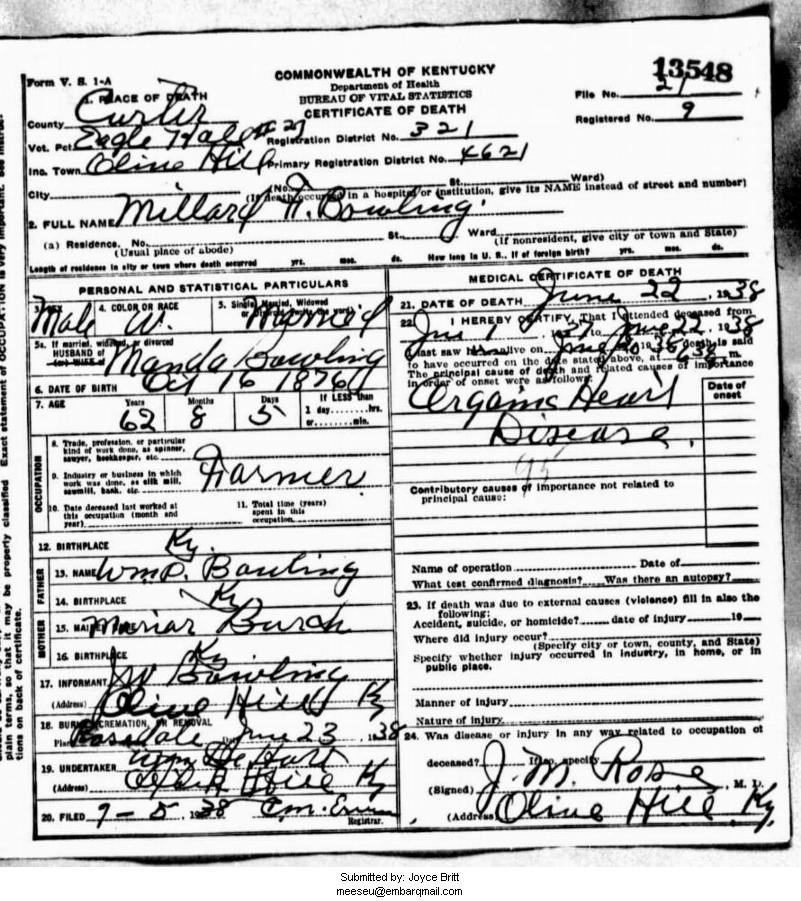 Form V. S. 1-A
COMMONWEALTH OF KENTUCKY
Department of Health
BUREAU OF VITAL STATISTICS
CERTIFICATE OF DEATH
13548
File No. 21
Registered No. 9
1. PLACE OF DEATH
County Carter
Vot. Pct. Eagle Hall #27 Registration District No. 321
Inc. Town Olive Hill Primary Registration District No. 4621
City (No. St. Ward)
(If death occurred in a hospital or institution, give its NAME instead of street and number)
2. FULL NAME Millard F. Bowling
(a) Residence. No. St., Ward
(Usual place of abode) (If nonresident, give city or town and State)
Length of residence in city or town where death occurred yrs. mos. ds. How long in U. S., if of foreign birth? yrs. mos. ds.
PERSONAL AND STATISTICAL PARTICULARS
3. SEX Male 4. COLOR OR RACE W. 5. Single, Married, Widowed or Divorced (write the word) Married
5a. If married, widowed, or divorced
HUSBAND of Manda Bowling
(or) WIFE of
6. DATE OF BIRTH Oct 16 1876
7. AGE Years 62 Months 8 Days 5 If LESS than 1 day........hrs. or........min.
OCCUPATION
8. Trade, profession, or particular kind of work done, as spinner, sawyer, bookkeeper, etc. Farmer
9. Industry or business in which work was done, as silk mill, sawmill, bank, etc.
10. Date deceased last worked at this occupation (month and year)
11. Total time (years) spent in this occupation
12. BIRTHPLACE Ky.
FATHER
13. NAME Wm P. Bowling
14. BIRTHPLACE Ky
MOTHER
15. MAIDEN NAME Mariar Burch
16. BIRTHPLACE Ky
17. INFORMANT Bowling
(Address) Olive Hill Ky
18. BURIAL, CREMATION, OR REMOVAL
Place Rosedale Date June 23, 1938
19. UNDERTAKER DeHart
(Address) Olive Hill Ky
20. FILED 7-5, 1938
Registrar.
MEDICAL CERTIFICATE OF DEATH
21. DATE OF DEATH June 22, 1938
22. I HEREBY CERTIFY, That I attended deceased from
June 1, 1937 to June 22, 1938
I last saw him alive on June 1938 death is said
to have occurred on the date stated above, at 638 m.
The principal cause of death and related causes of importance
in order of onset were as follows:
Date of onset
Organic Heart
Disease
95
Contributory causes of importance not related to
principal cause:
Name of operation Date of
What test confirmed diagnosis? Was there an autopsy?
23. If death was due to external causes (violence) fill in also the
following:
Accident, suicide, or homicide? date of injury 19
Where did injury occur?
(Specify city or town, county, and State)
Specify whether injury occurred in industry, in home, or in
public place.
Manner of injury
Nature of injury
24. Was disease or injury in any way related to occupation of
deceased? If so, specify
(Signed) J. M. Rose, M. D.
(Address) Olive Hill Ky.
plain terms, so that it may be properly classified Exact statement of OCCUPATION is very important. See instruc-
tions on back of certificate.
Submitted by: Joyce Britt
meeseu@embarqmail.com